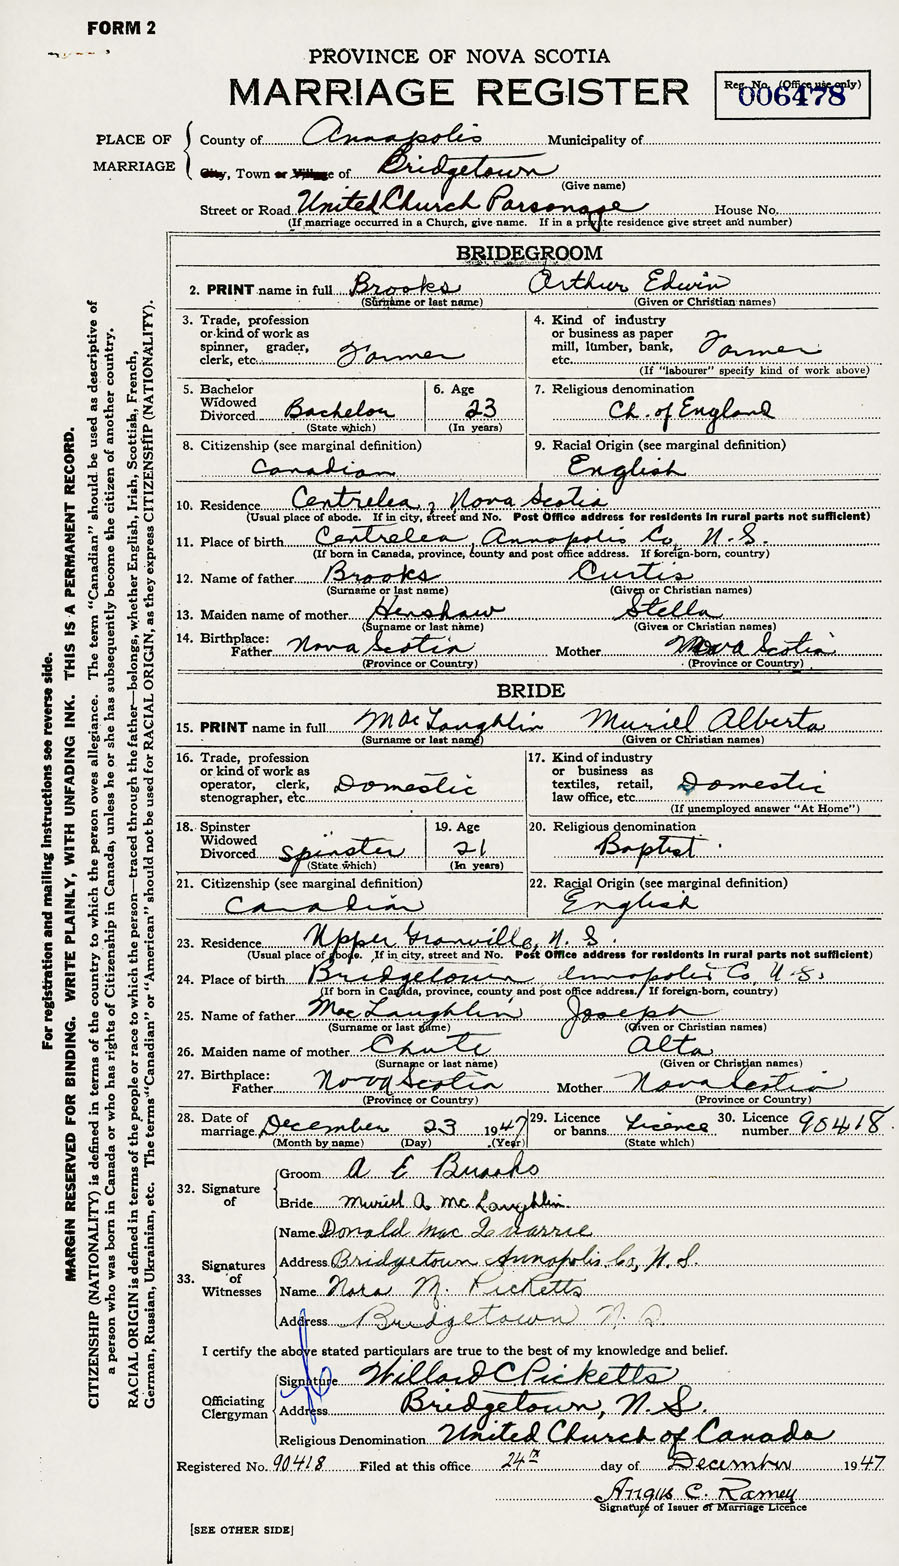 FORM 2
PROVINCE OF NOVA SCOTIA
MARRIAGE REGISTER
Reg. No. (Office use only)
006478
PLACE OF MARRIAGE
County of Annapolis Municipality of
City, Town or Village of Bridgetown
(Give name)
Street or Road United Church Parsonage House No.
(If marriage occurred in a Church, give name. If in a private residence give street and number)
BRIDEGROOM
2. PRINT name in full Brooks Arthur Edwin
(Surname or last name) (Given or Christian names)
3. Trade, profession or kind of work as spinner, grader, clerk, etc. Farmer
4. Kind of industry or business as paper mill, lumber, bank, etc. Farmer
(If "labourer" specify kind of work above)
5. Bachelor Widowed Divorced Bachelor
(State which)
6. Age 23
(In years)
7. Religious denomination
Ch. of England
8. Citizenship (see marginal definition)
Canadian
9. Racial Origin (see marginal definition)
English
10. Residence Centrelea, Nova Scotia
(Usual place of abode. If in city, street and No. Post Office address for residents in rural parts not sufficient)
11. Place of birth Centrelea, Annapolis Co, N. S.
(If born in Canada, province, county and post office address. If foreign-born, country)
12. Name of father Brooks Curtis
(Surname or last name) (Given or Christian names)
13. Maiden name of mother Henshaw Stella
(Surname or last name) (Given or Christian names)
14. Birthplace: Father Nova Scotia Mother Nova Scotia
(Province or Country) (Province or Country)
BRIDE
15. PRINT name in full MacLaughlin Muriel Alberta
(Surname or last name) (Given or Christian names)
16. Trade, profession or kind of work as operator, clerk, stenographer, etc. Domestic
17. Kind of industry or business as textiles, retail, law office, etc. Domestic
(If unemployed answer "At Home")
18. Spinster Widowed Divorced Spinster
(State which)
19. Age 21
(In years)
20. Religious denomination
Baptist
21. Citizenship (see marginal definition)
Canadian
22. Racial Origin (see marginal definition)
English
23. Residence Upper Granville, N. S.
(Usual place of abode. If in city, street and No. Post Office address for residents in rural parts not sufficient)
24. Place of birth Bridgetown Annapolis Co, N. S.
(If born in Canada, province, county and post office address. If foreign-born, country)
25. Name of father MacLaughlin Joseph
(Surname or last name) (Given or Christian names)
26. Maiden name of mother Chute Alta
(Surname or last name) (Given or Christian names)
27. Birthplace: Father Nova Scotia Mother Nova Scotia
(Province or Country) (Province or Country)
28. Date of marriage December 23 1947
(Month by name) (Day) (Year)
29. Licence or banns Licence
(State which)
30. Licence number 90418
32. Signature of
Groom A E Brooks
Bride Muriel A. McLaughlin
33. Signatures of Witnesses
Name Donald Mac
Address Bridgetown Annapolis Co, N. S.
Name Nora M. Picketts
Address Bridgetown N. S.
I certify the above stated particulars are true to the best of my knowledge and belief.
Officiating Clergyman
Signature Willard C Picketts
Address Bridgetown, N. S.
Religious Denomination United Church of Canada
Registered No. 90418 Filed at this office 24th day of December 1947
Angus C. Ramey
Signature of Issuer of Marriage Licence
[SEE OTHER SIDE]
For registration and mailing instructions see reverse side.
MARGIN RESERVED FOR BINDING. WRITE PLAINLY, WITH UNFADING INK. THIS IS A PERMANENT RECORD.
CITIZENSHIP (NATIONALITY) is defined in terms of the country to which the person owes allegiance. The term "Canadian" should be used as descriptive of
a person who was born in Canada or who has rights of Citizenship in Canada, unless he or she has subsequently become the citizen of another country.
RACIAL ORIGIN is defined in terms of the people or race to which the person—traced through the father—belongs, whether English, Irish, Scottish, French,
German, Russian, Ukrainian, etc. The terms "Canadian" or "American" should not be used for RACIAL ORIGIN, as they express CITIZENSHIP (NATIONALITY).